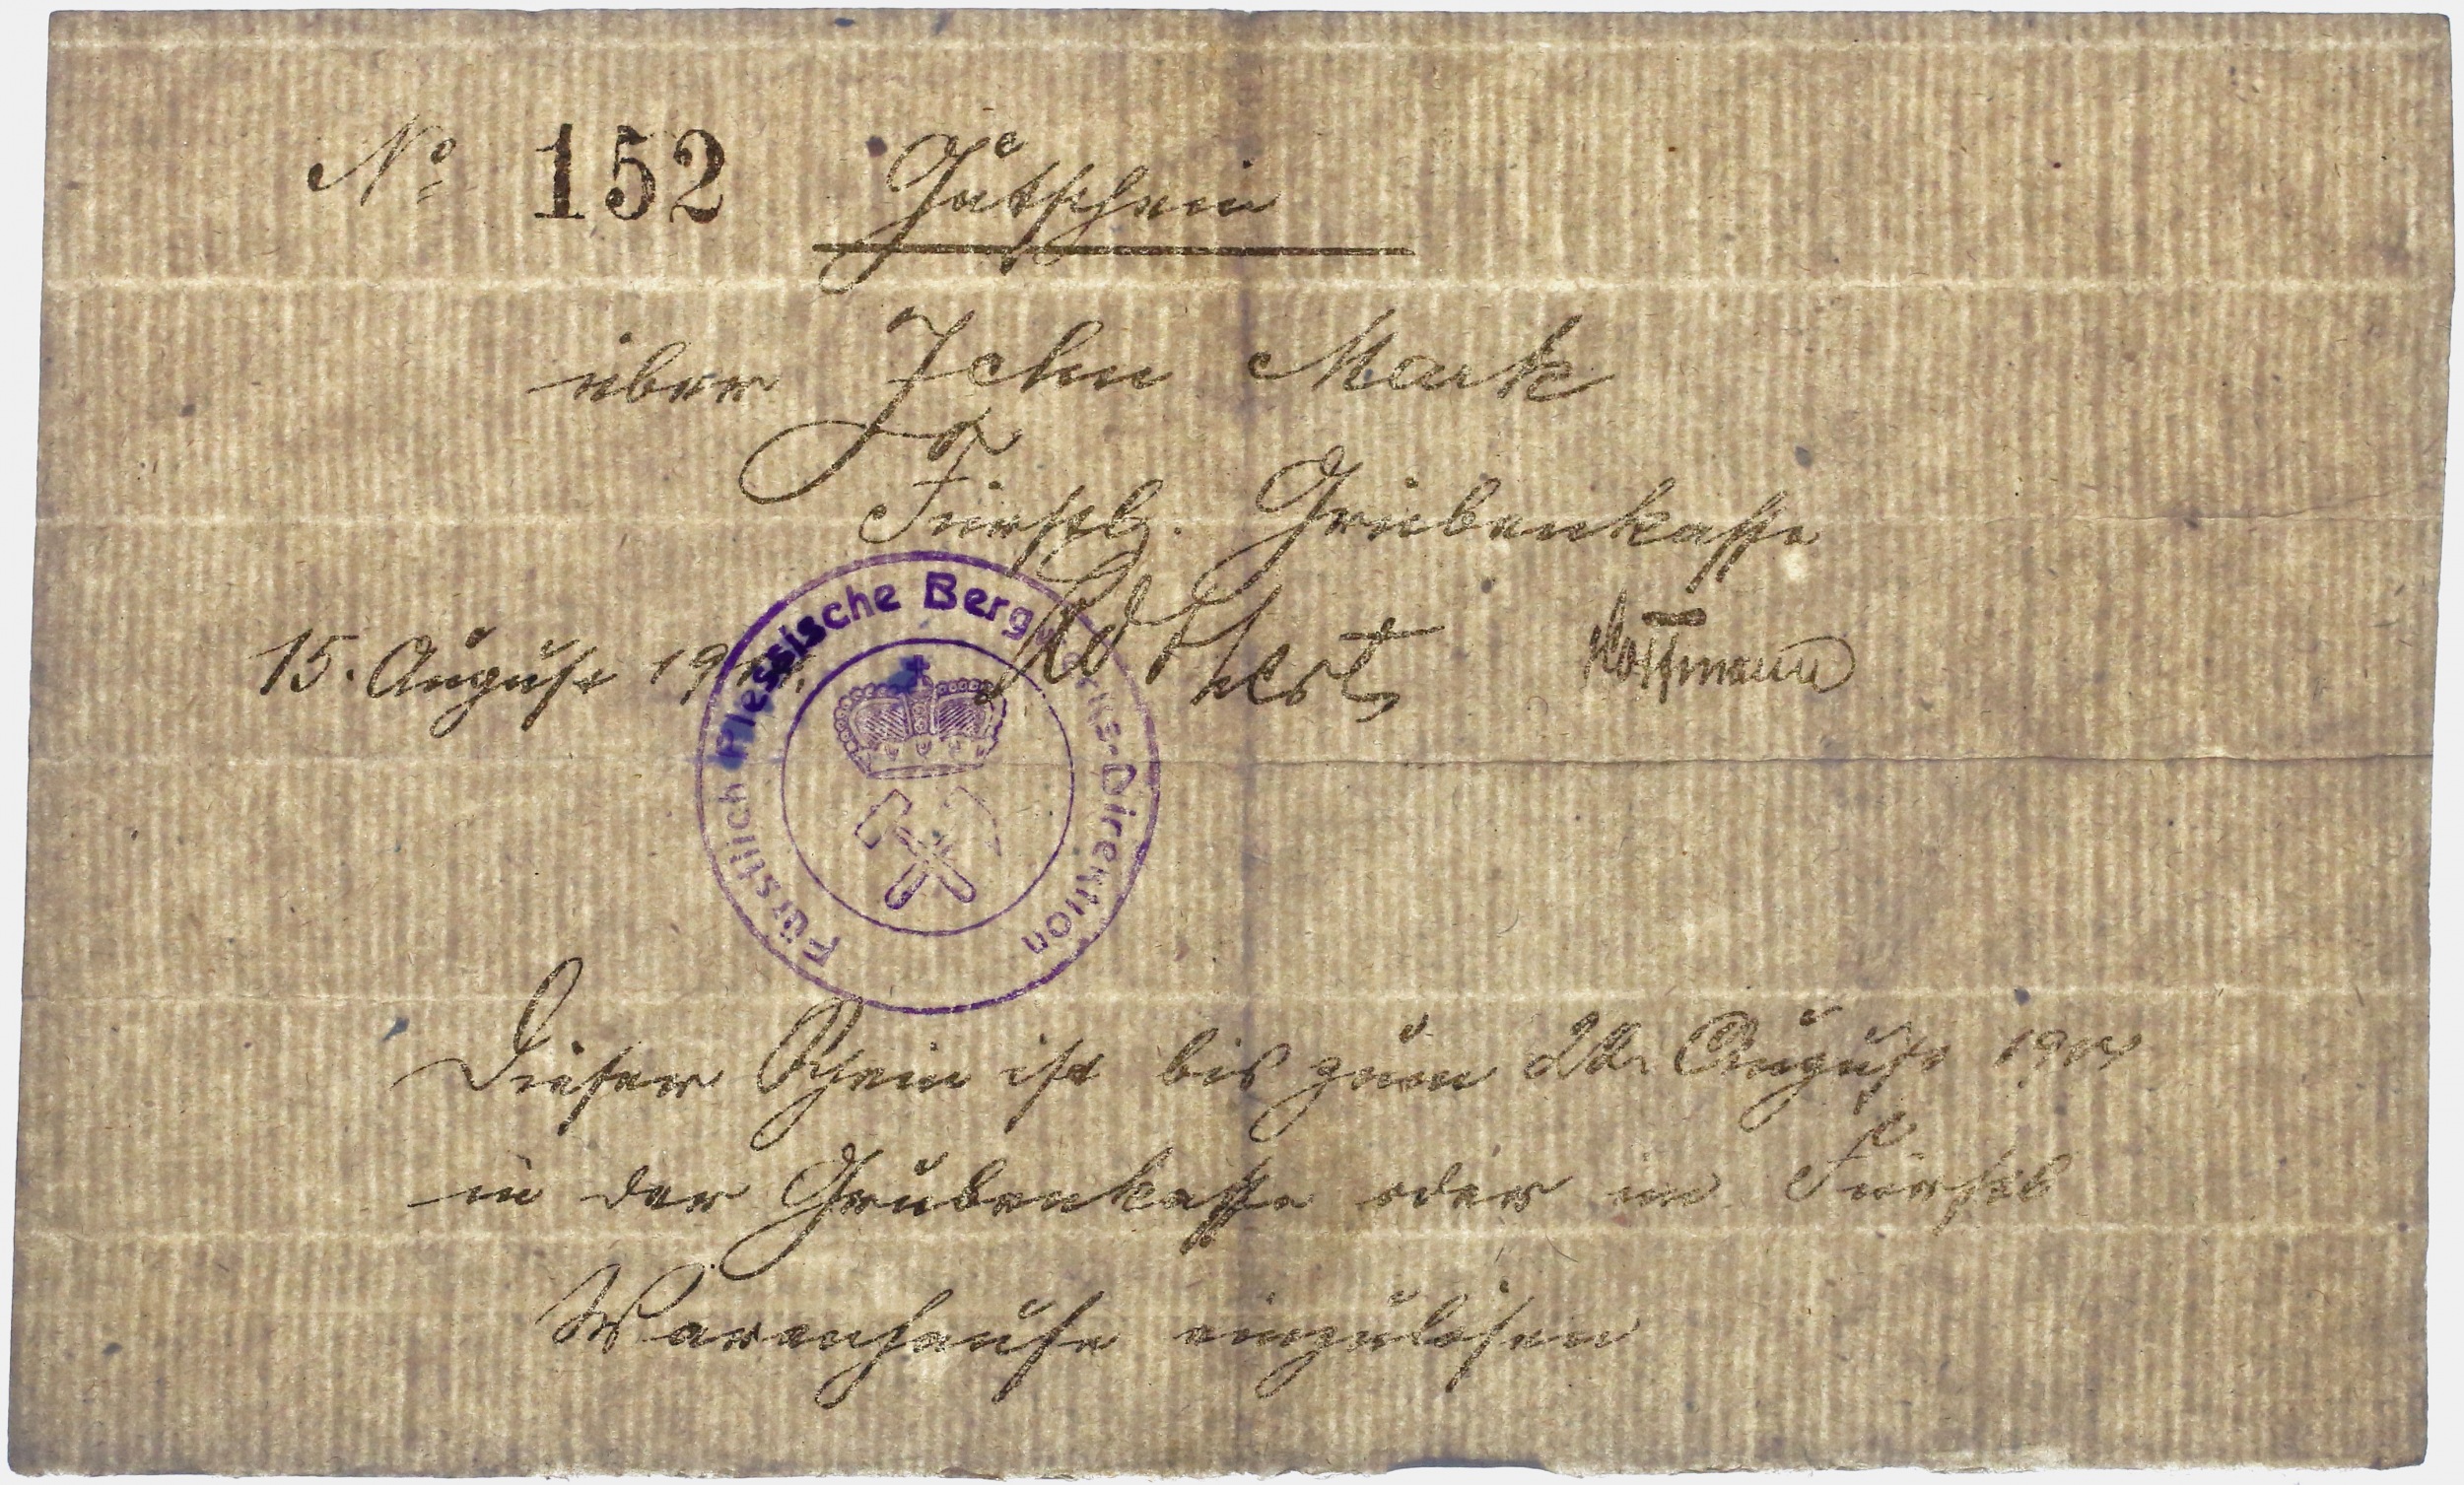 No 152 Gutschein
über Zehn Mark
Fürstl. Grubenkasse
15. August 1914.
Hoffmann
Fürstlich Plessische Bergwerks-Direktion
Dieser Schein ist bis zum 22. August 1914
in der Grubenkasse oder im Fürstl
Warenhause einzulösen